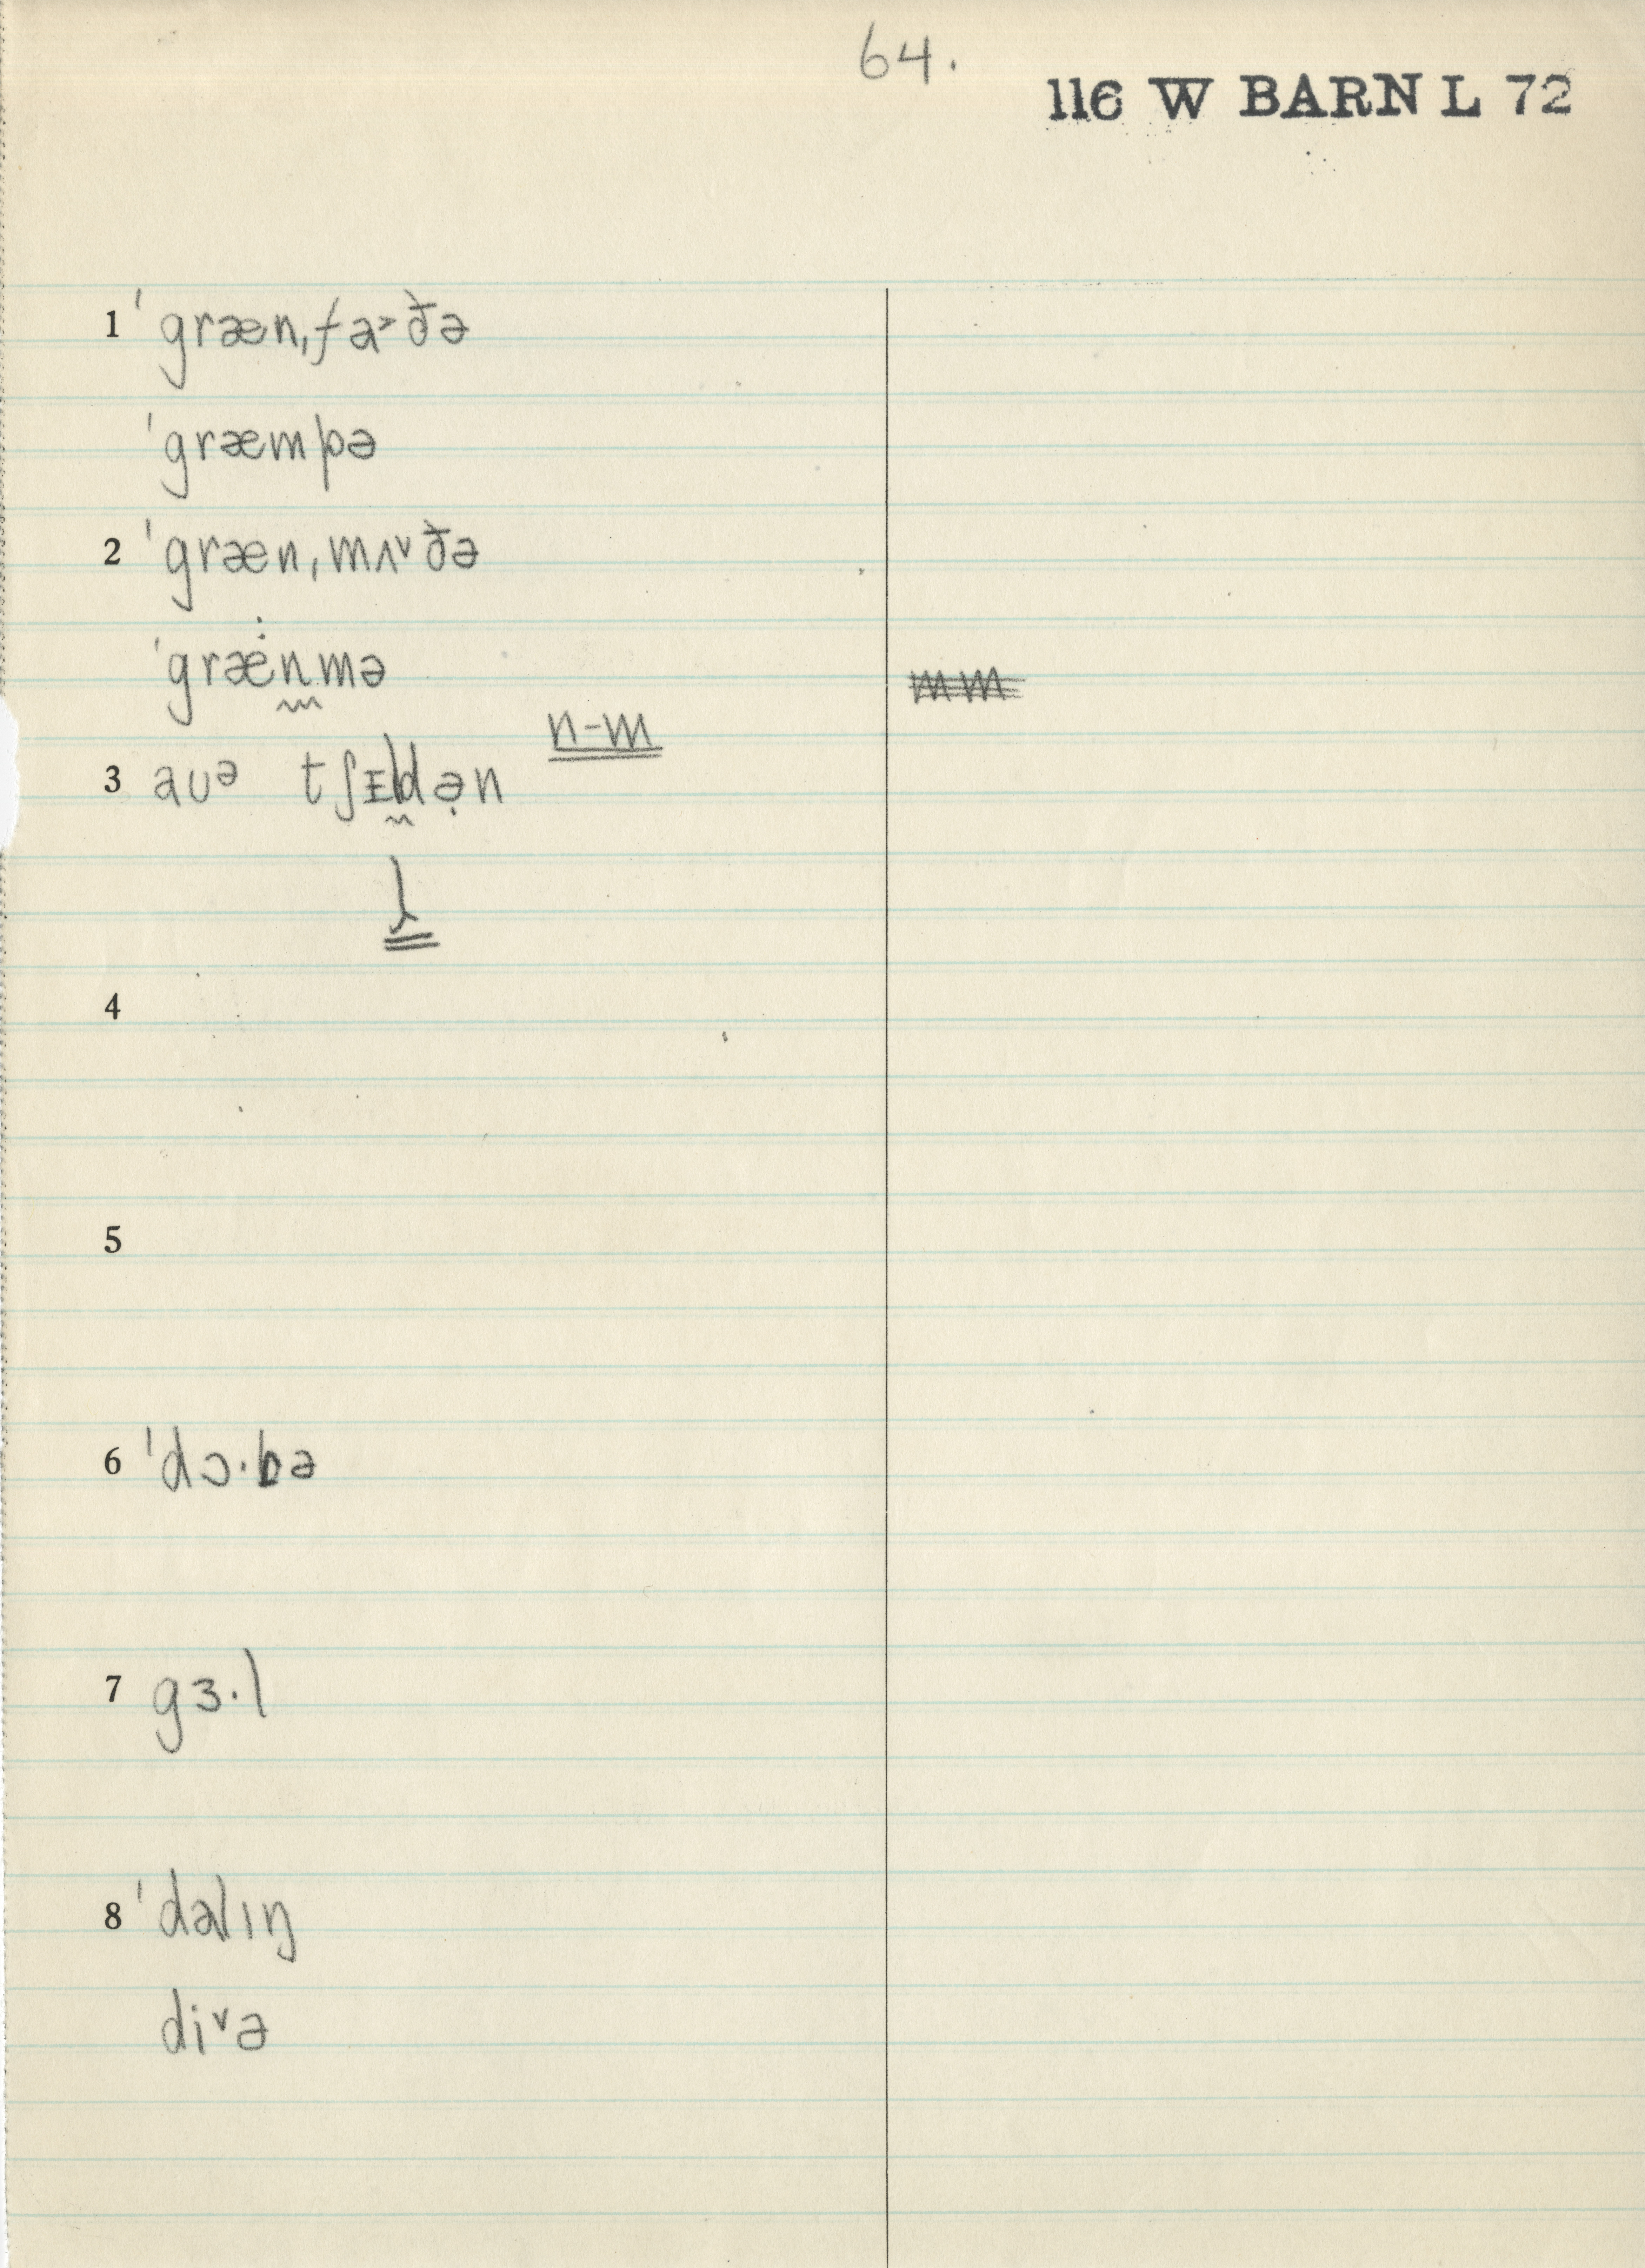 64.
116 W BARN L 72
1 ˈgræn,fa˃ðə
ˈgræmpə
2 ˈgræn,mʌ˅ðə
ˈgræ:nmə
n-m
3 aʊᵊ tʃɪldə̣n
l
4
5
6 ˈdɔ·bə
7 gɜ·l
8 ˈdalɪŋ
di˅ə